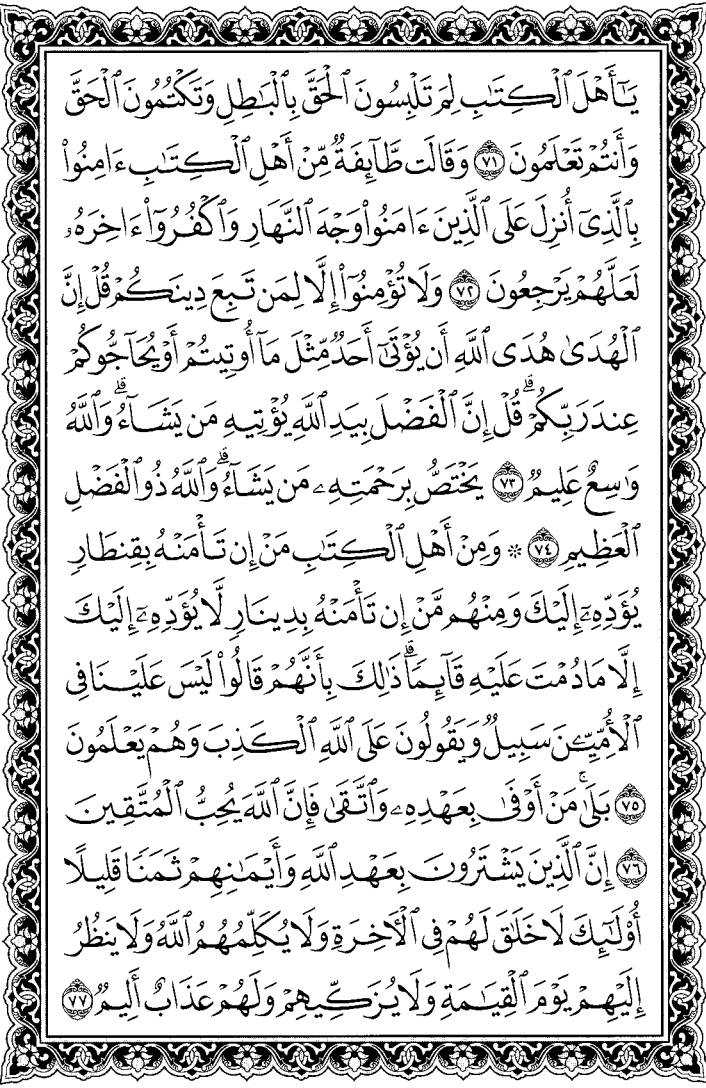 يَـٰٓأَهْلَ ٱلْكِتَـٰبِ لِمَ تَلْبِسُونَ ٱلْحَقَّ بِٱلْبَـٰطِلِ وَتَكْتُمُونَ ٱلْحَقَّ
وَأَنتُمْ تَعْلَمُونَ ٧١ وَقَالَت طَّآئِفَةٌ مِّنْ أَهْلِ ٱلْكِتَـٰبِ ءَامِنُوا۟
بِٱلَّذِىٓ أُنزِلَ عَلَى ٱلَّذِينَ ءَامَنُوا۟ وَجْهَ ٱلنَّهَارِ وَٱكْفُرُوٓا۟ ءَاخِرَهُۥ
لَعَلَّهُمْ يَرْجِعُونَ ٧٢ وَلَا تُؤْمِنُوٓا۟ إِلَّا لِمَن تَبِعَ دِينَكُمْ قُلْ إِنَّ
ٱلْهُدَىٰ هُدَى ٱللَّهِ أَن يُؤْتَىٰٓ أَحَدٌ مِّثْلَ مَآ أُوتِيتُمْ أَوْ يُحَآجُّوكُمْ
عِندَ رَبِّكُمْ ۗ قُلْ إِنَّ ٱلْفَضْلَ بِيَدِ ٱللَّهِ يُؤْتِيهِ مَن يَشَآءُ ۗ وَٱللَّهُ
وَٰسِعٌ عَلِيمٌ ٧٣ يَخْتَصُّ بِرَحْمَتِهِۦ مَن يَشَآءُ ۗ وَٱللَّهُ ذُو ٱلْفَضْلِ
ٱلْعَظِيمِ ٧٤ * وَمِنْ أَهْلِ ٱلْكِتَـٰبِ مَنْ إِن تَأْمَنْهُ بِقِنطَارٍ
يُؤَدِّهِۦٓ إِلَيْكَ وَمِنْهُم مَّنْ إِن تَأْمَنْهُ بِدِينَارٍ لَّا يُؤَدِّهِۦٓ إِلَيْكَ
إِلَّا مَا دُمْتَ عَلَيْهِ قَآئِمًا ۗ ذَٰلِكَ بِأَنَّهُمْ قَالُوا۟ لَيْسَ عَلَيْنَا فِى
ٱلْأُمِّيِّـۧنَ سَبِيلٌ وَيَقُولُونَ عَلَى ٱللَّهِ ٱلْكَذِبَ وَهُمْ يَعْلَمُونَ
٧٥ بَلَىٰ ۚ مَنْ أَوْفَىٰ بِعَهْدِهِۦ وَٱتَّقَىٰ فَإِنَّ ٱللَّهَ يُحِبُّ ٱلْمُتَّقِينَ
٧٦ إِنَّ ٱلَّذِينَ يَشْتَرُونَ بِعَهْدِ ٱللَّهِ وَأَيْمَـٰنِهِمْ ثَمَنًا قَلِيلًا
أُو۟لَـٰٓئِكَ لَا خَلَـٰقَ لَهُمْ فِى ٱلْـَٔاخِرَةِ وَلَا يُكَلِّمُهُمُ ٱللَّهُ وَلَا يَنظُرُ
إِلَيْهِمْ يَوْمَ ٱلْقِيَـٰمَةِ وَلَا يُزَكِّيهِمْ وَلَهُمْ عَذَابٌ أَلِيمٌ ٧٧